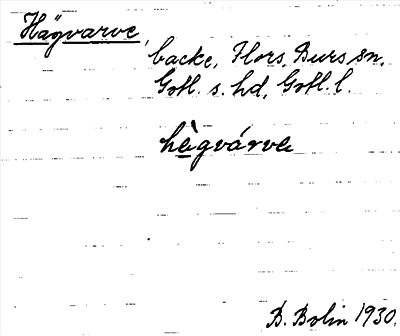 Hägvarve,
backe, Flors, Burs sn,
Gotl. s. hd, Gotl. l.
hègvárva
B. Bolin 1930.